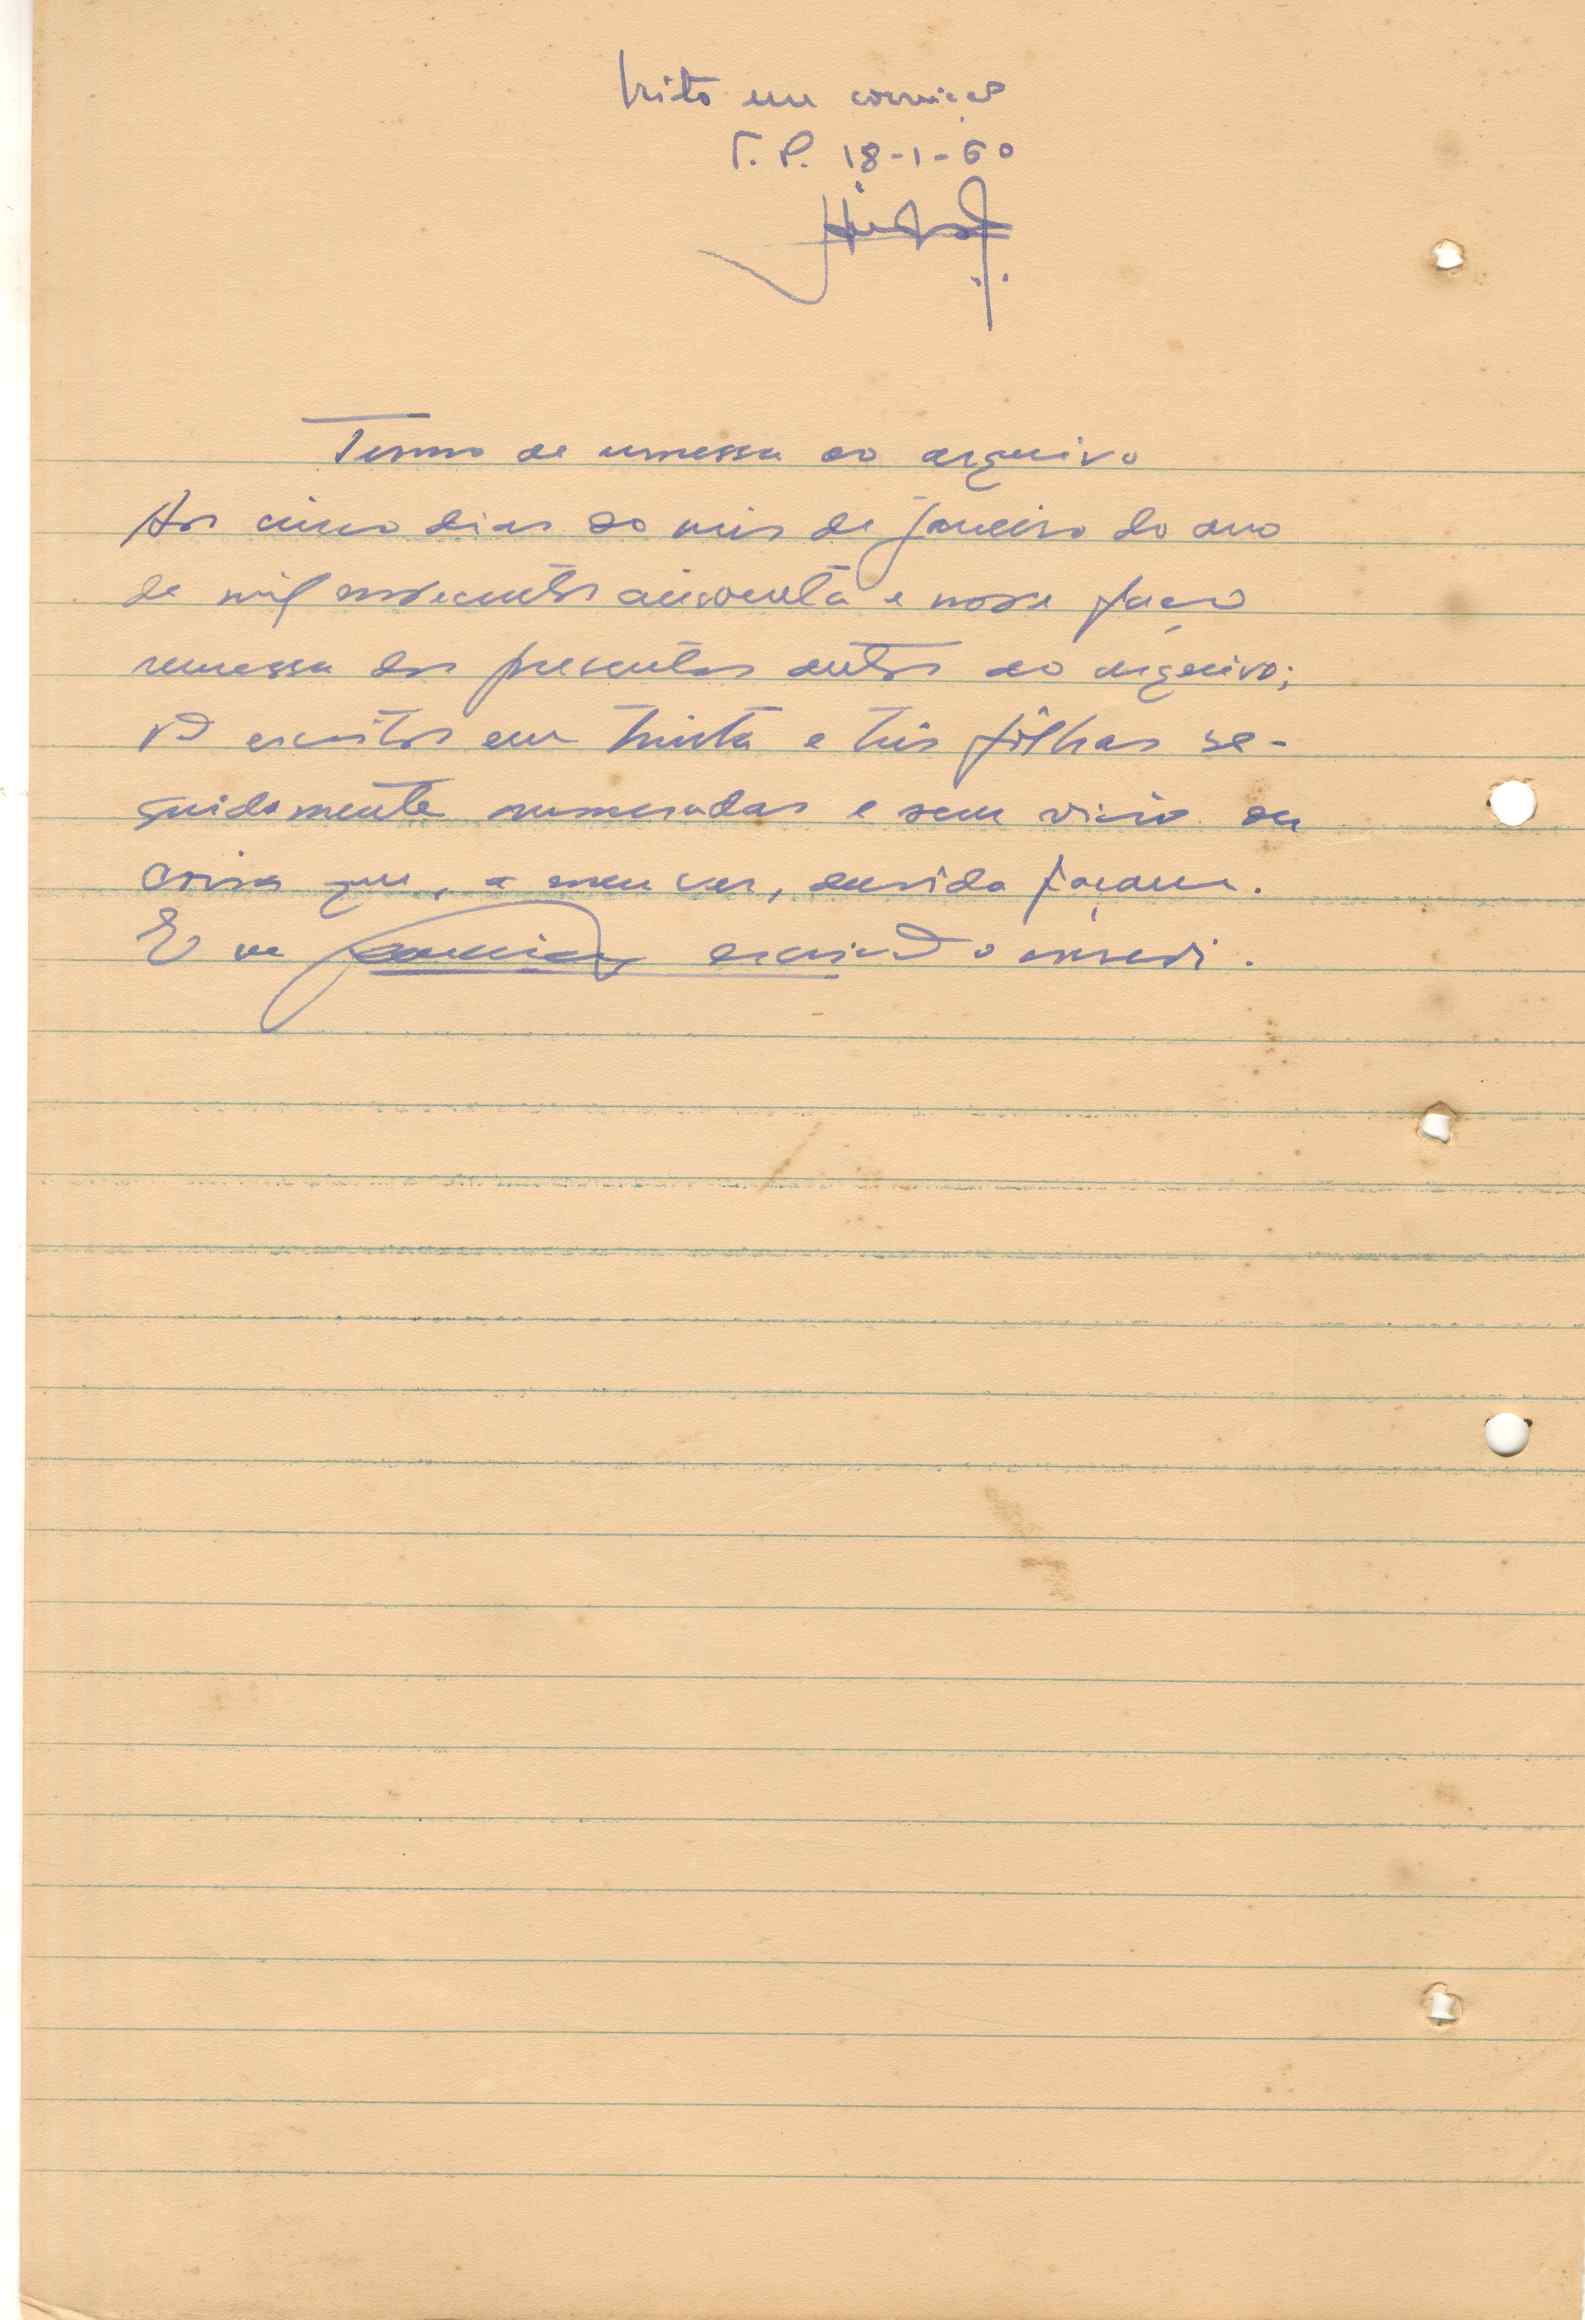 Visto em correição
T. P. 18-1-60
Termo de remessa ao arquivo
Aos cinco dias do mês de janeiro do ano
de mil novecentos cincoenta e nove faço
remessa dos presentes autos ao arquivo;
vão escritos em trinta e três fôlhas se-
guidamente numeradas e sem vicio ou
coisa que, a meu ver, duvida façam.
E eu escrivão o escrevi.